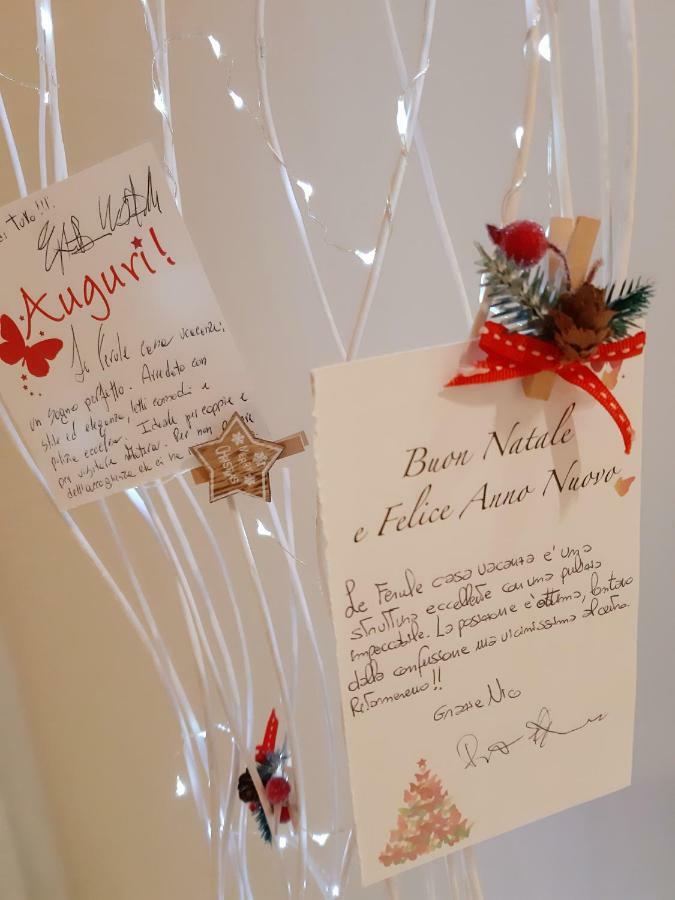 di tutto!!!
Auguri!
Le Ferule casa vacanze,
un sogno perfetto. Arredato con
stile ed eleganza, letti comodi e
pulizia eccellente. Ideale per coppie e
per visitare Matera. Per non
dell'accoglienza che ci ha
CHRISTMAS
Buon Natale
e Felice Anno Nuovo
Le Ferule casa vacanza e' una
struttura eccellente con una pulizia
impeccabile. La posizione e' ottima, lontano
dalla confusione ma vicinissima al centro.
Ritorneremo!!
Grazie Nico